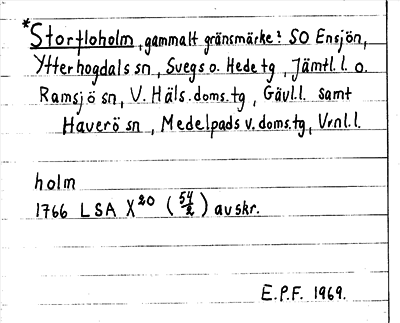 *Stortloholm, gammalt gränsmärke: SO Ensjön,
Ytterhogdals sn, Svegs o. Hede tg, Jämtl. l. o.
Ramsjö sn, V. Häls. doms. tg, Gävl. l. samt
Haverö sn, Medelpads v. doms. tg, Vrnl. l.
holm
1766 LSA X20 (54/2) avskr.
E.P.F. 1969.